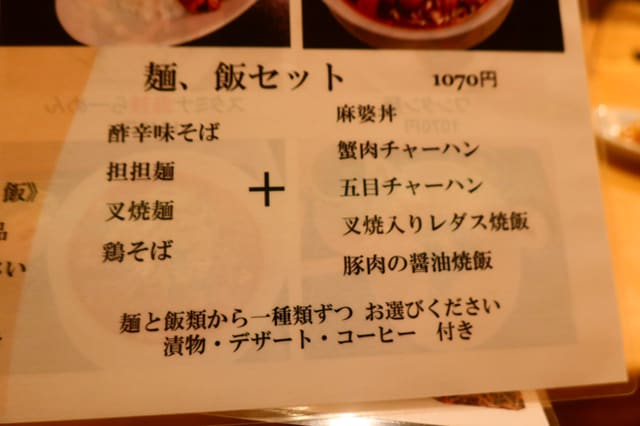 麺、飯セット 1070円
酢辛味そば
担担麺
叉焼麺
鶏そば
+
麻婆丼
蟹肉チャーハン
五目チャーハン
叉焼入りレタス焼飯
豚肉の醤油焼飯
麺と飯類から一種類ずつ お選びください
漬物・デザート・コーヒー 付き
飯》
品
さい